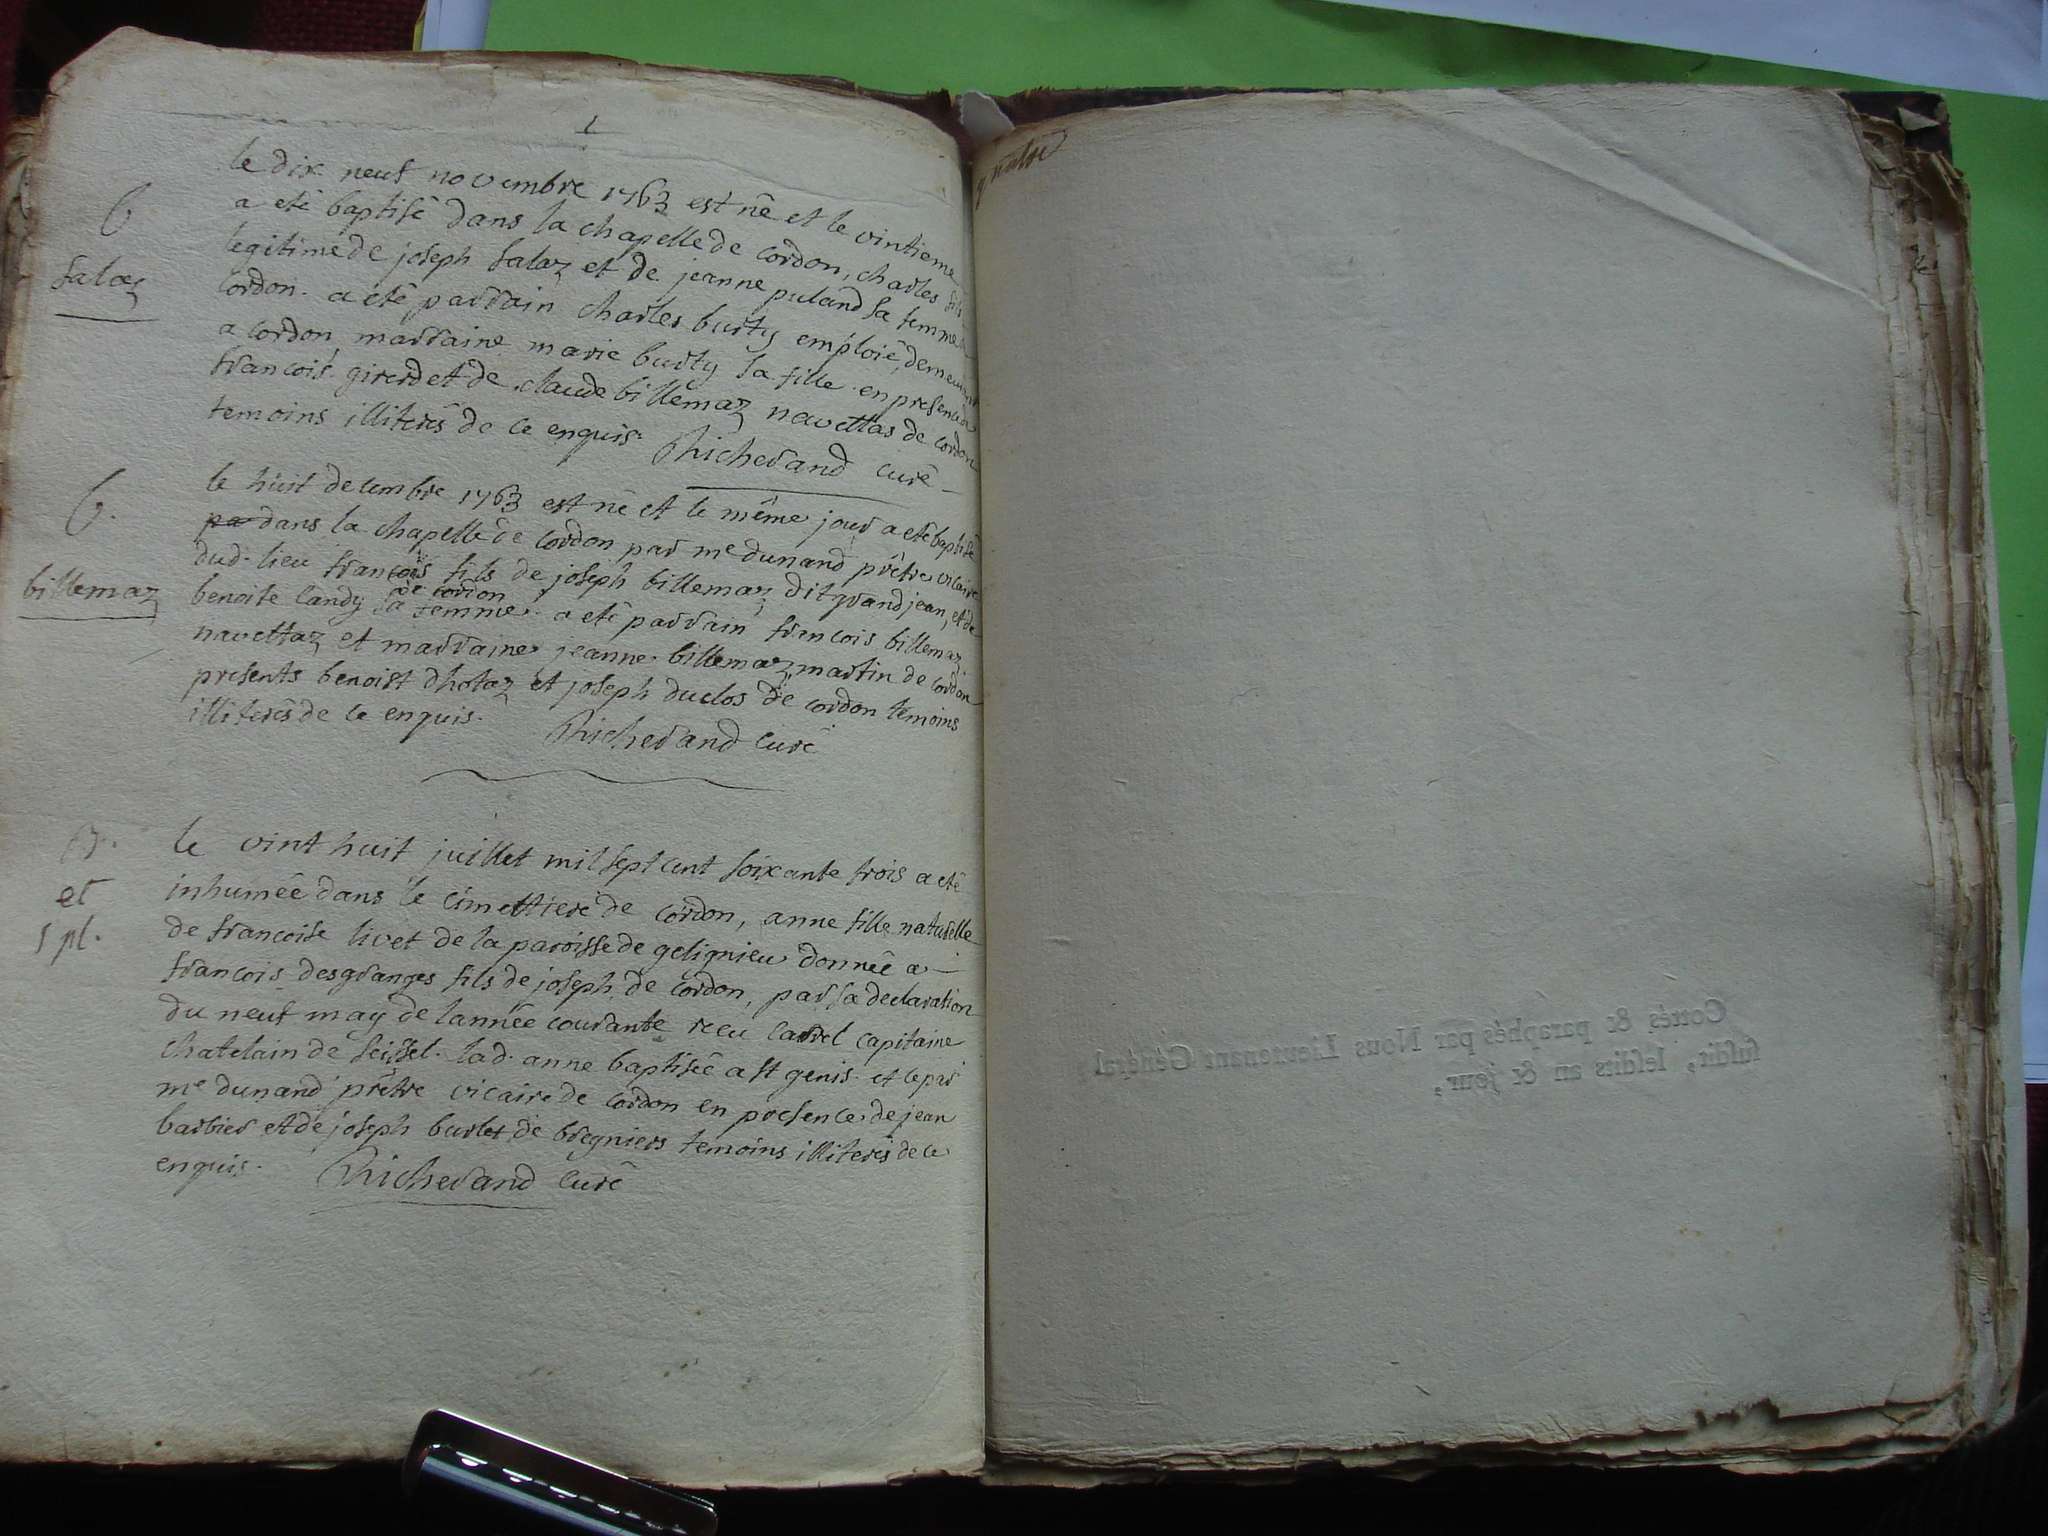 1
le dix neuf novembre 1763 est né et le vintieme
b a eté baptisé dans la chapelle de cordon, charles fils
Salaz legitime de joseph Salaz et de jeanne puland sa femme
cordon. a eté parrain charles burty emploié, demeurant
a cordon, marraine marie burty sa fille. en presence de
francois girerd et de claude billemaz navettas de cordon
temoins illiterés de ce enquis. Richerand curé
b. le huit decembre 1763 est né et le même jour a eté baptisé
pa dans la chapelle de cordon par me dunand prêtre vicaire
dud. lieu francois fils de joseph billemaz dit grand jean, et de
de cordon
billemaz benoite landy sa femme. a eté parrain francois billemaz
navettaz et marraine jeanne billemaz martin de cordon
presents benoist dhotaz et joseph duclos de cordon temoins
illiterés de ce enquis. Richerand curé
le vint huit juillet mil sept cent soixante trois a eté
et inhumée dans le cimettiere de cordon, anne fille naturelle
de francoise livet de la paroisse de gelignieu donnée a
francois desgranges fils de joseph de cordon, par sa declaration
du neuf may de lannée courante receu carrel capitaine
chatelain de seissel. lad. anne baptisée a st genis. et ce par
me dunand prêtre vicaire de cordon en presence de jean
barbier et de joseph burlet de bregniers temoins illiterés de ce
enquis. Richerand curé
Cottés & paraphés par Nous Lieutenant Général
susdit, lesdits an & jour,